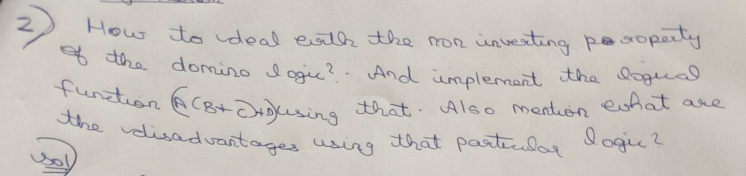 2) How to deal with the non inverting property
of the domino logic?. And implement the logical
function (A(B+C)+D) using that. Also mention what are
the disadvantages using that particular logic?
sol)